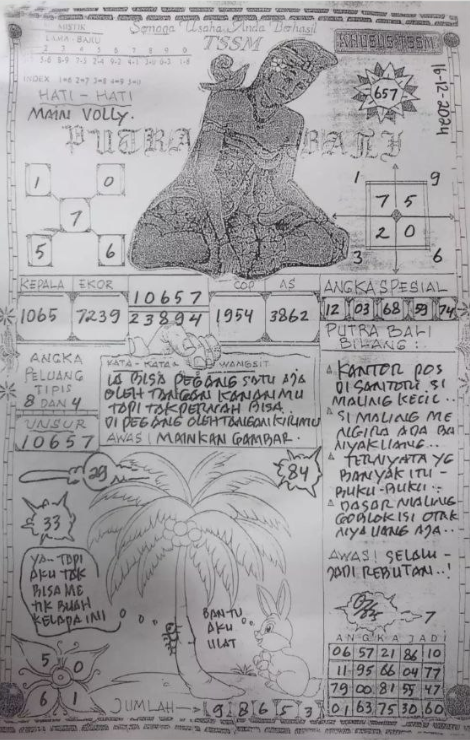 MISTIK
LAMA - BARU
Semoga Usaha Anda Berhasil
TSSM
KHUSUS TSSM
2 3 4 5 6 7 8 9 0
INDEX 1=6 2=7 3=8 4=9 5=0
HATI - HATI
MAIN VOLLY.
657
16-12-2024
PUTRA BALI
1 0
7
5 6
1 9
7 5
2 0
3 6
KEPALA EKOR COP AS
1065 7239
10657
23894
1954 3862
ANGKA SPESIAL
12 03 68 59 74
PUTRA BALI
BILANG :
ANGKA
PELUANG
TIPIS
8 DAN 4
UNSUR
10657
KATA - KATA WANGSIT
IA BISA PEGANG SATU AJA
OLEH TANGAN KANANMU
TAPI TAK PERNAH BISA
DI PEGANG OLEH TANGAN KIRIMU
AWAS! MAINKAN GAMBAR.
KANTOR POS
DI SANTORI SI
MALING KECIL..
SI MALING ME
NGIRA ADA BA
NYAK UANG..
TERNYATA YG
BANYAK ITU -
BUKU-BUKU..
DASAR MALING
GOBLOK ISI OTAK
NYA UANG AJA..
AWAS! SELALU -
JADI REBUTAN..!
29
84
33
YA- TAPI
AKU TAK
BISA ME
TIK BUAH
KELAPA INI
BANTU
AKU
ULAT
5 0
6 1
JUMLAH
9 8 6 5 3
7
ANGKA JADI
06 57 21 86 10
11 95 66 04 77
79 00 81 55 47
01 63 75 30 60